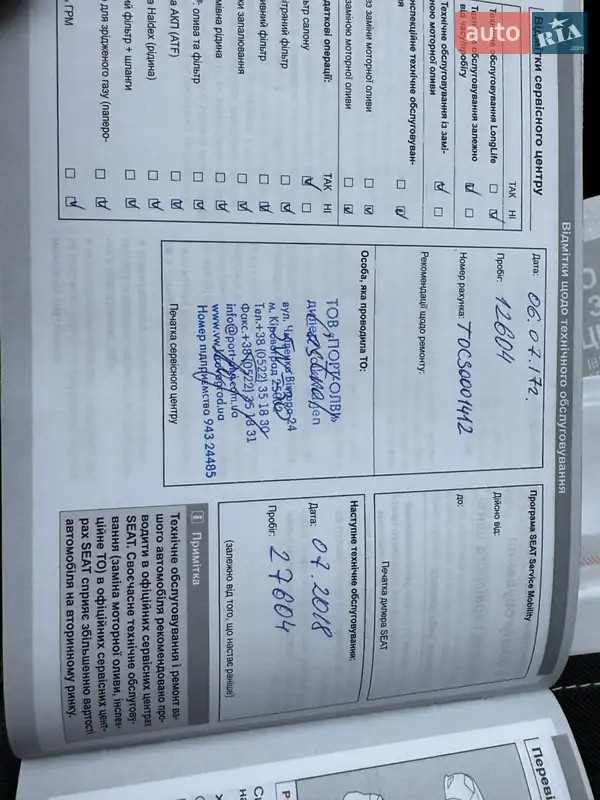 Відмітки щодо технічного обслуговування
Відмітки сервісного центру
ТАК НІ
Технічне обслуговування LongLife
Технічне обслуговування залежно
від часу/пробігу
Технічне обслуговування із замі-
ною моторної оливи
нспекційне технічне обслуговуван-
ня
ез заміни моторної оливи
заміною моторної оливи
даткові операції:
ТАК НІ
ьтр салону
тряний фільтр
ивний фільтр
ки запалювання
мівна рідина
олива та фільтр
а АКП (ATF)
а Haldex (рідина)
й фільтр + шланги
о для зрідженого газу (паперо-
ь ГРМ
Дата: 06.07.17г.
Пробіг: 12604
Номер рахунка: ТОСS0001412
Рекомендації щодо ремонту:
Особа, яка проводила ТО:
ТОВ «ПОРТ-ОЛВІ»
24
м. Кіровоград
Тел.+38 (0522) 35 18 30
Факс.+38(0522) 35 18 31
Номер підприємство 943 24485
Печатка сервісного центру
Програма SEAT Service Mobility
Дійсно від:
до:
Печатка дилера SEAT
Наступне технічне обслуговування:
Дата: 07.2018
Пробіг: 27604
(залежно від того, що настає раніше)
i Примітка
Технічне обслуговування і ремонт ва-
шого автомобіля рекомендовано про-
водити в офіційних сервісних центрах
SEAT. Своєчасне технічне обслугову-
вання (заміна моторної оливи, інспек-
ційне ТО) в офіційних сервісних цент-
рах SEAT сприяє збільшенню вартості
автомобіля на вторинному ринку.
Переві
auto RIA.com